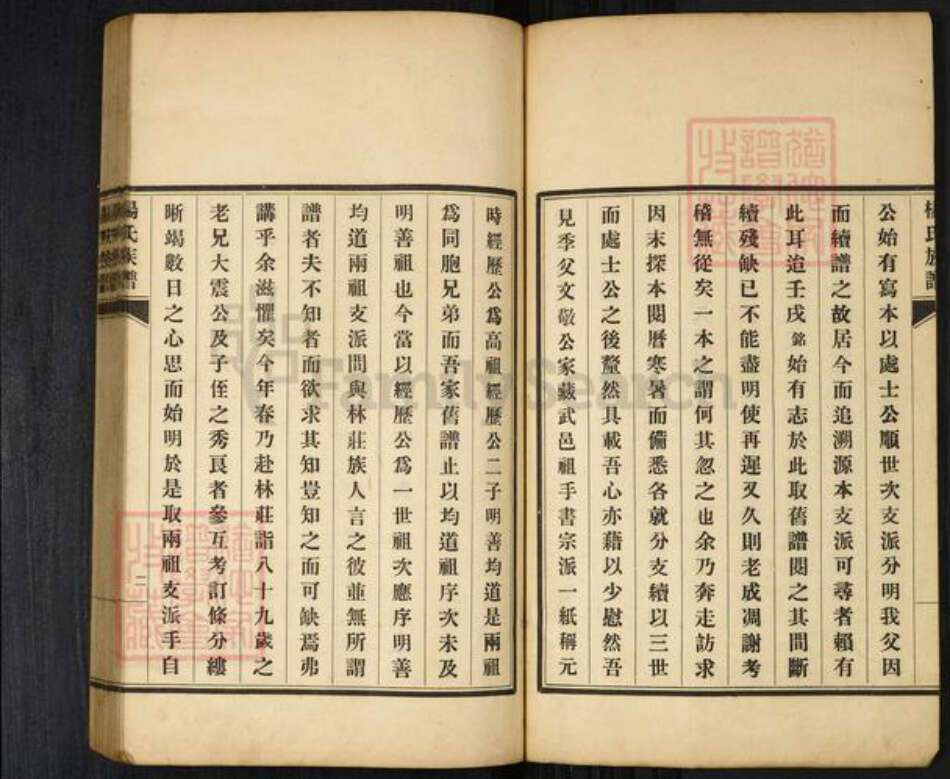 楊氏族譜
公始有寫本以處士公順世次支派分明我父因
而續譜之故居今而追溯源本支派可尋者賴有
此耳迨壬戌銘始有志於此取舊譜閱之其間斷
續殘缺已不能盡明使再遲又久則老成凋謝考
稽無從矣一本之謂何其忽之也余乃奔走訪求
因末探本閱曆寒暑而備悉各就分支續以三世
而處士公之後釐然具載吾心亦藉以少慰然吾
見季父文敬公家藏武邑祖手書宗派一紙稱元
時經歷公為高祖經歷公二子明善均道是兩祖
為同胞兄弟而吾家舊譜止以均道祖序次未及
明善祖也今當以經歷公為一世祖次應序明善
均道兩祖支派間與林莊族人言之彼並無所謂
譜者夫不知者而欲求其知豈知之而可缺焉弗
講乎余滋懼矣今年春乃赴林莊詣八十九歲之
老兄大震公及子侄之秀良者參互考訂條分縷
晰竭數日之心思而始明於是取兩祖支派手自
楊氏族譜
二
FamilySearch